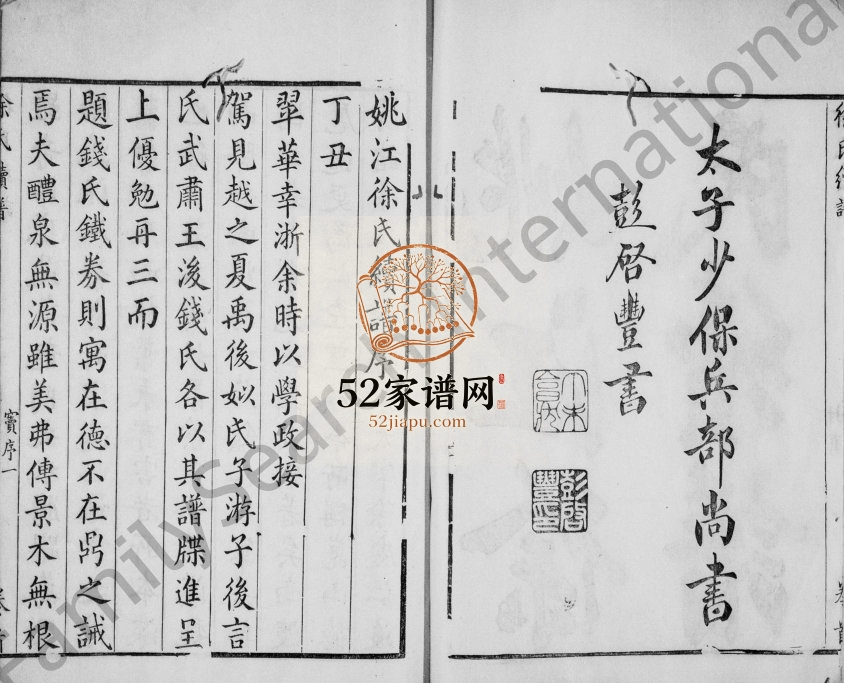 太子少保兵部尚書
彭啓豐書
彭啓豐印
姚江徐氏續譜序
丁丑
翠華幸浙余時以學政接
駕見越之夏禹後姒氏子游子後言
氏武肅王後錢氏各以其譜牒進呈
上優勉再三而
題錢氏鐵券則寓在德不在鼎之誡
焉夫醴泉無源雖美弗傳景木無根
徐氏續譜
竇序一
卷首
52家谱网
52jiapu.com
FamilySearch International